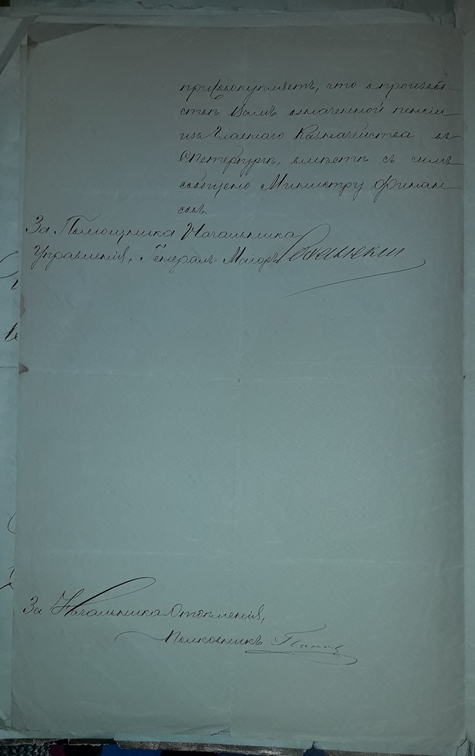 присовокупляетъ, что о производ-
ствѣ Вамъ означенной пенсіи
изъ Главнаго Казначейства въ
СПетербургѣ, вмѣстѣ съ симъ
сообщено Министру Финан-
совъ.
За Помощника Начальника
Управленія, Генералъ Маіоръ
За Начальника Отдѣленія,
Полковникъ